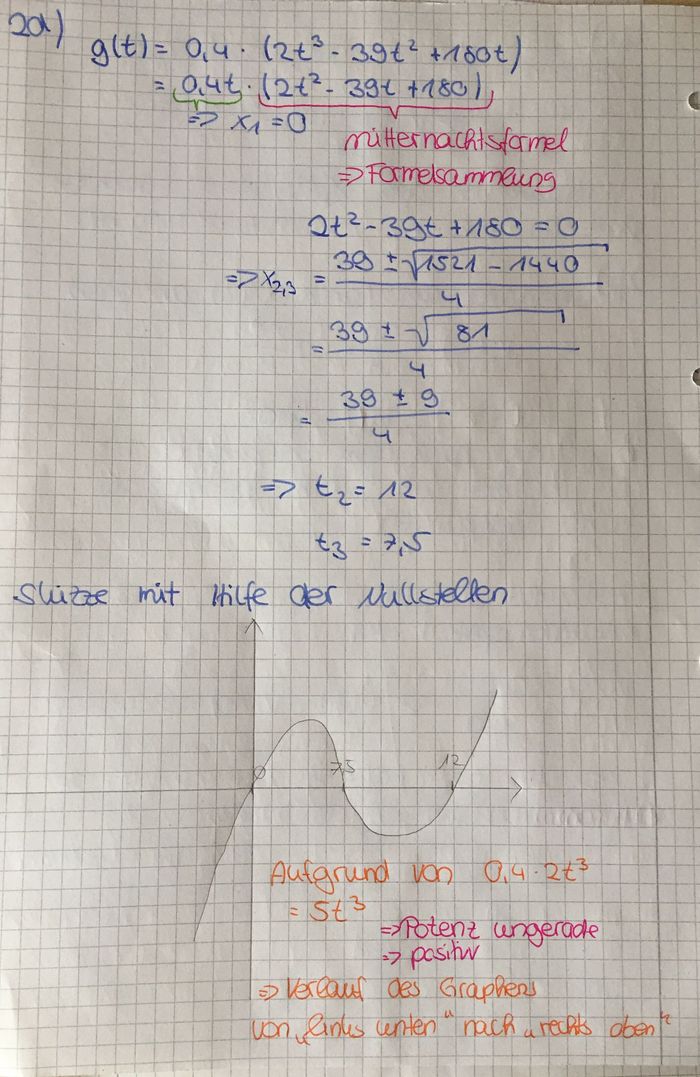 2a)
g(t) = 0,4 · (2t³ - 39t² + 180t)
= 0,4t · (2t² - 39t + 180)
=> x₁ = 0
Mitternachtsformel
=> Formelsammlung
2t² - 39t + 180 = 0
=> x₂,₃ = (39 ± √(1521 - 1440)) / 4
= (39 ± √81) / 4
= (39 ± 9) / 4
=> t₂ = 12
t₃ = 7,5
Skizze mit Hilfe der Nullstellen
0 7,5 12
Aufgrund von 0,4 · 2t³
= 5t³
=> Potenz ungerade
=> positiv
=> Verlauf des Graphens
von „links unten" nach „rechts oben"